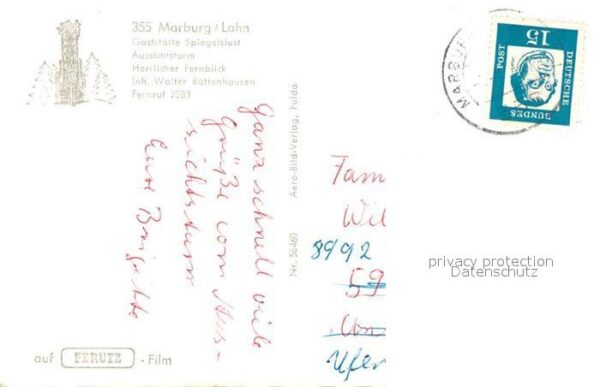 355 Marburg/Lahn
Gaststätte Spiegelslust
Aussichtsturm
Herrlicher Fernblick
Inh. Walter Böttenhausen
Fernruf 2283
Ganz schnell viele
Grüße vom Aus-
sichtsturm
Eure Brigitte
Nr. 56460 Aero-Bild-Verlag, Fulda
auf PERUTZ - Film
MARBU
15
DEUTSCHE
BUNDES
POST
Fam
Wil
8992
59
privacy protection
Datenschutz